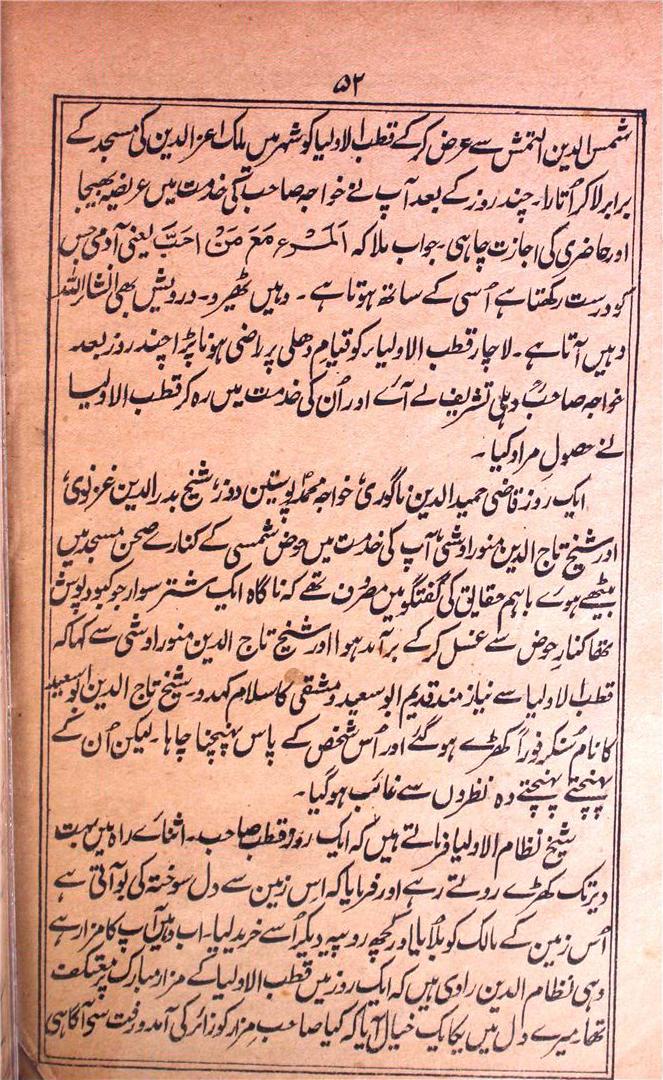 ۵۲
شمس الدین التمش سے عرض کر کے قطب الاولیا کو شہر میں ملک اعز الدین کی مسجد کے
برابر لا کر اُتارا۔ چند روز کے بعد آپ نے خواجہ صاحب کی خدمت میں عریضہ بھیجا
اور حاضری کی اجازت چاہی۔ جواب ملا کہ اَلمَرْءُ مَعَ مَنْ اَحَبَّ یعنی آدمی جس
کو درست رکھتا ہے اُسی کے ساتھ ہوتا ہے۔ وہیں ٹھیرو۔ درویش بھی انشاء اللہ
وہیں آتا ہے۔ لاچار قطب الاولیاء کو قیام دھلی پر راضی ہونا پڑا چند روز بعد
خواجہ صاحبؒ دہلی تشریف لے آئے اور اُن کی خدمت میں رہ کر قطب الاولیا
نے حصولِ مراد کیا۔
ایک روز قاضی حمید الدین ناگوریؒ خواجہ محمد پوستین دوزؒ شیخ بدر الدین غزنویؒ
اور شیخ تاج الدین منور اوشیؒ آپ کی خدمت میں حوض شمسی کے کنارے صحن مسجد میں
بیٹھے ہوے باہم حقایق کی گفتگو میں مصروف تھے کہ ناگاہ ایک شتر سوار جو کبود پوش
تھا کنارِ حوض سے غسل کر کے برآمد ہوا اور شیخ تاج الدین منور اوشی سے کہا کہ
قطب الاولیا سے نیاز مند قدیم ابو سعید دمشقی کا سلام کہدو۔ شیخ تاج الدین ابو سعید
کا نام سُنکر فوراً کھڑے ہو گئے اور اُس شخص کے پاس پہنچنا چاہا۔ لیکن اُن کے
پہنچتے پہنچتے وہ نظروں سے غائب ہو گیا۔
شیخ نظام الاولیا فرماتے ہیں کہ ایک روز قطب صاحب۔ اثنائے راہ میں بہت
دیر تک کھڑے روتے رہے اور فرمایا کہ اس زمین سے دل سوختہ کی بو آتی ہے
اُس زمین کے مالک کو بلایا اور کچھ روپیہ دیکر اُسے خرید لیا۔ اب وہیں آپ کا مزار ہے
وہی نظام الدین راوی ہیں کہ ایک روز میں قطب الاولیا کے مزار مبارک پر معتکف
تھا۔ میرے دل میں یکایک خیال آیا کہ کیا صاحب مزار کو زائر کی آمد و رفت سی آگاہی